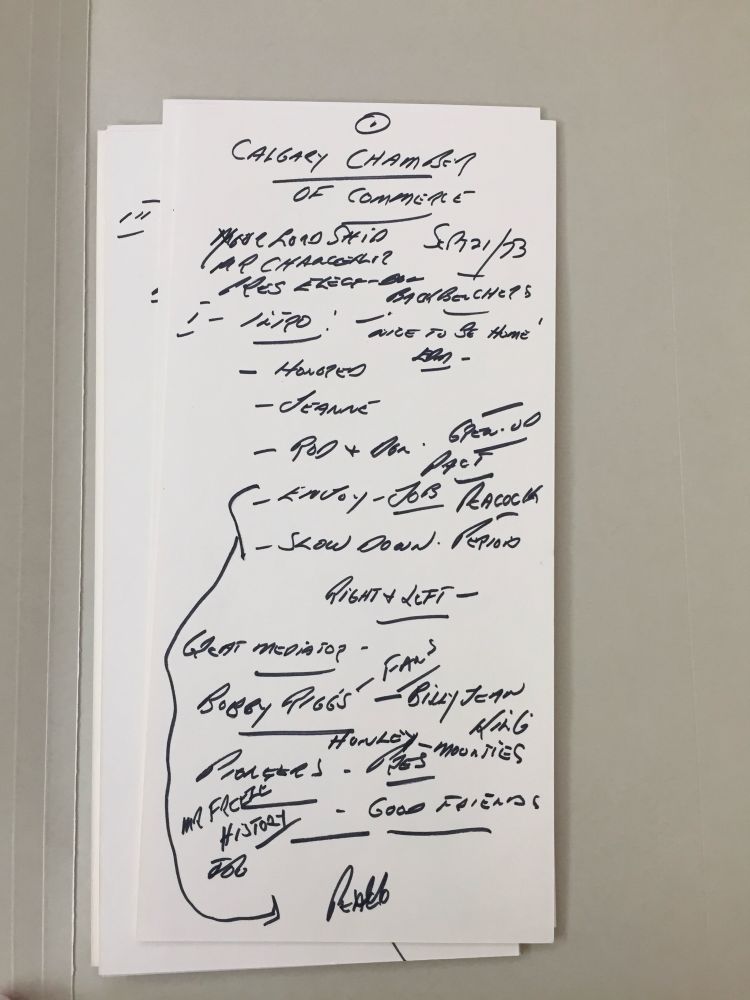 CALGARY CHAMBER
OF COMMERCE
YOUR LORDSHIP SEP 21/73
MR CHANCELLOR
PRES ELECT-DON BACKBENCHERS
1- INTRO! - NICE TO BE HOME!
- HONORED
- JEANNE
- ROD & DON. OPEN-UP
PACT
- ENJOY - JOB PEACOCK
- SLOW DOWN. PERIOD
RIGHT & LEFT -
GREAT MEDIATOR -
FANS
BOBBY RIGGS - BILLY JEAN
KING
HONLEY - MOUNTIES
PIONEERS - PRES
MR FREEZE - GOOD FRIENDS
HISTORY
JOB